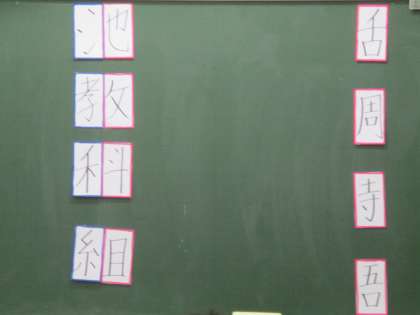 池
教
科
組
舌
周
寺
吾